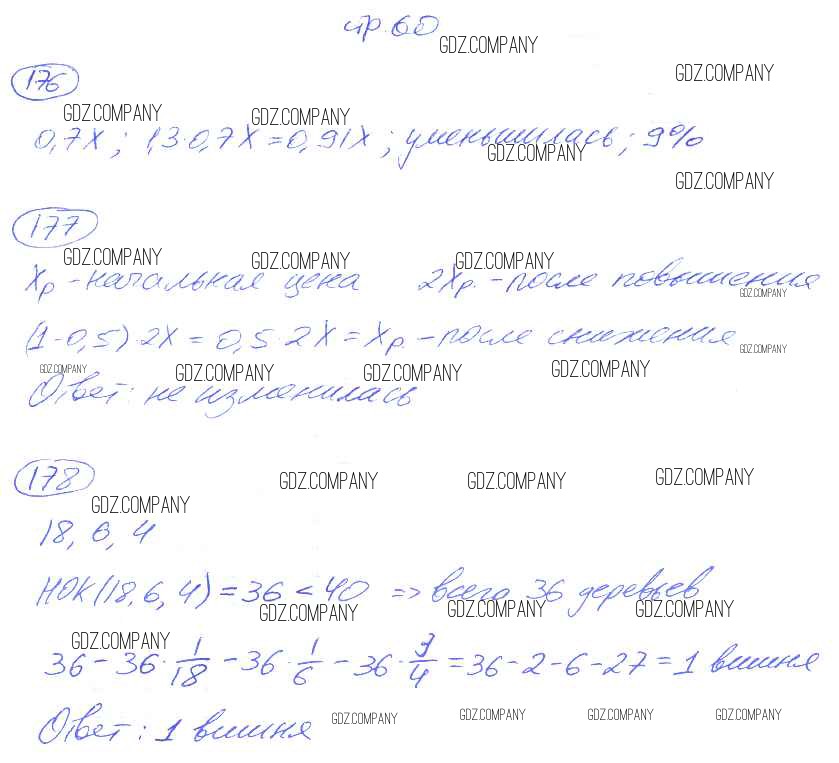 стр. 60
GDZ.COMPANY
176
GDZ.COMPANY
GDZ.COMPANY GDZ.COMPANY
0,7x; 1,3·0,7x=0,91x; уменьшилась; 9%
GDZ.COMPANY
GDZ.COMPANY
177
GDZ.COMPANY GDZ.COMPANY GDZ.COMPANY
xр - начальная цена 2xр. - после повышения
GDZ.COMPANY
(1-0,5)·2x = 0,5·2x = xр. - после снижения
GDZ.COMPANY
GDZ.COMPANY GDZ.COMPANY GDZ.COMPANY GDZ.COMPANY
Ответ: не изменилась
178
GDZ.COMPANY GDZ.COMPANY GDZ.COMPANY
GDZ.COMPANY
18, 6, 4
НОК(18,6,4)=36<40 => всего 36 деревьев
GDZ.COMPANY GDZ.COMPANY GDZ.COMPANY
GDZ.COMPANY
36 - 36·1/18 - 36·1/6 - 36·3/4 = 36-2-6-27=1 вишня
Ответ: 1 вишня
GDZ.COMPANY GDZ.COMPANY GDZ.COMPANY GDZ.COMPANY